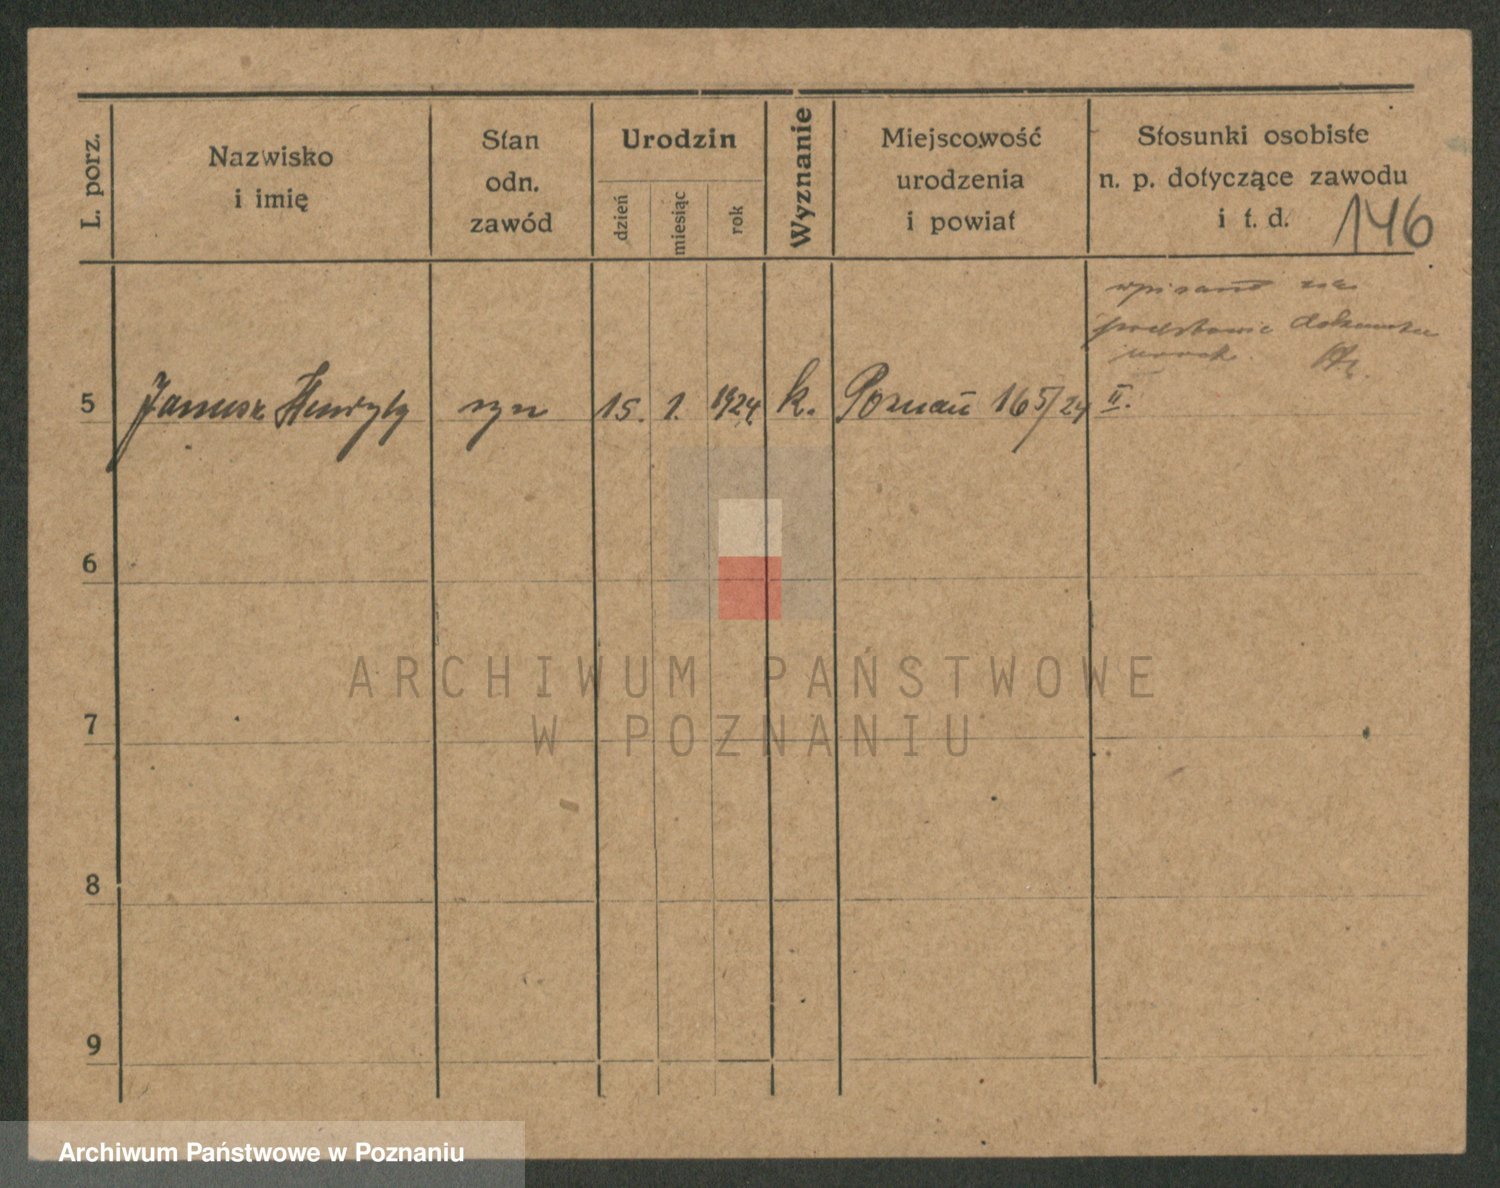 L. porz.
Nazwisko
i imię
Stan
odn.
zawód
Urodzin
dzień
miesiąc
rok
Wyznanie
Miejscowość
urodzenia
i powiat
Stosunki osobiste
n. p. dotyczące zawodu
i t. d.
146
wpisano na
podstawie
5 Janusz syn 15. 1. 1924 k. Poznań 165/24 II.
6
7
8
9
ARCHIWUM PAŃSTWOWE
W POZNANIU
Archiwum Państwowe w Poznaniu